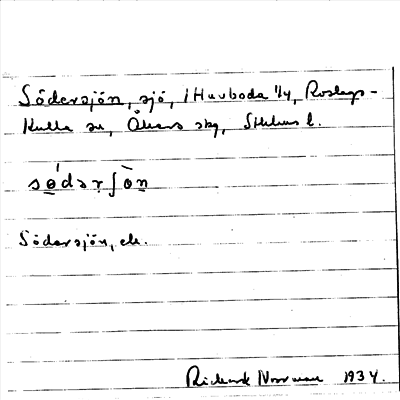 Södersjön, sjö, i Huvboda 1/4, Roslags-
Kulla sn, Åkers skg, Sthlms l.
sǿdərʃòn
Södersjön, ek.
Rickard Norrman 1934.